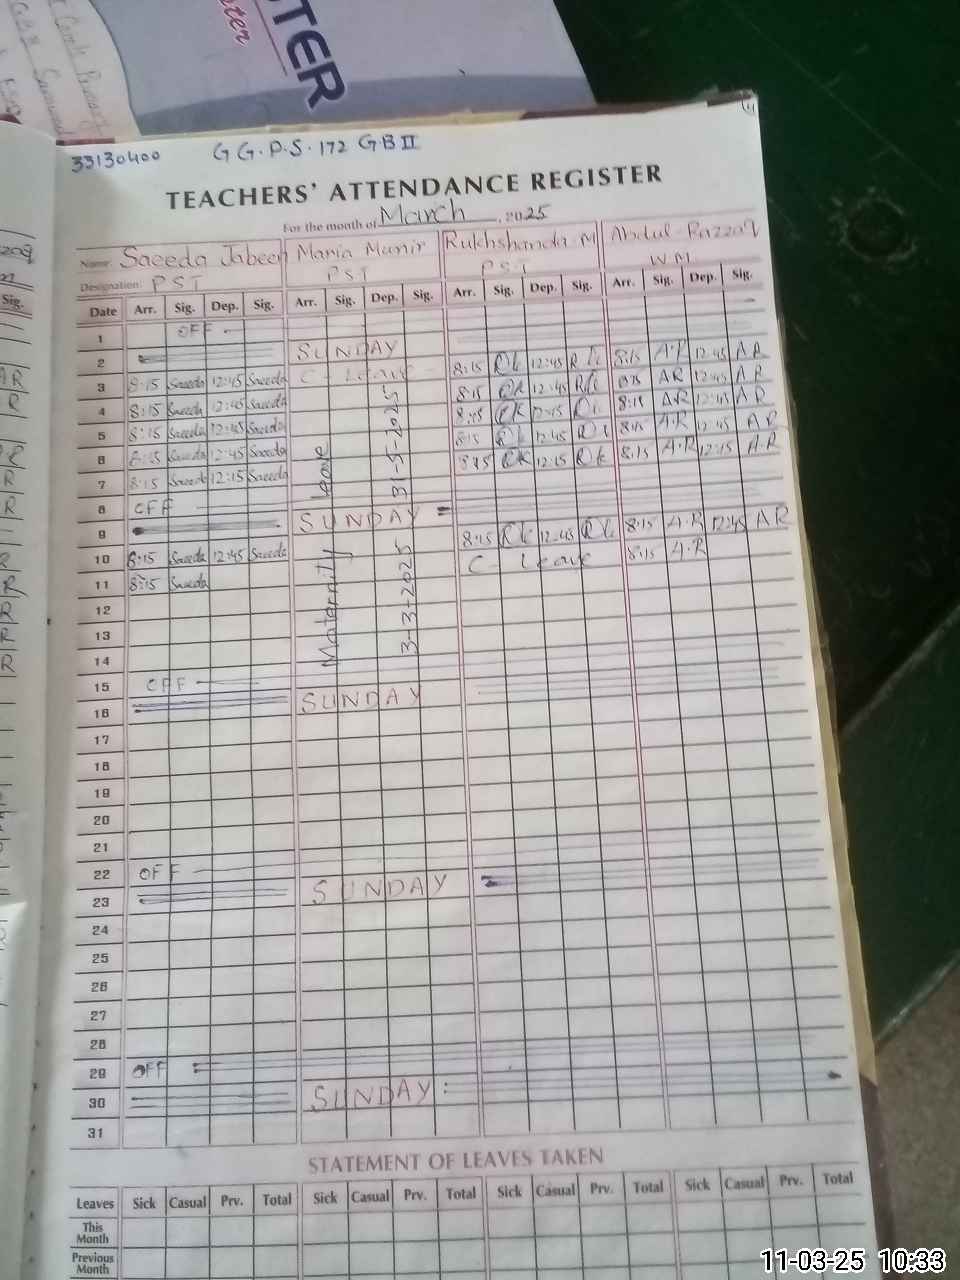 TER
ter
33130400 G G.P.S. 172 G B II
TEACHERS' ATTENDANCE REGISTER
For the month of March, 2025
Name: Saeeda Jabeen Maria Munir Rukhshanda M Abdul-Razzaq
Designation: PST PST PST W M
Date Arr. Sig. Dep. Sig. Arr. Sig. Dep. Sig. Arr. Sig. Dep. Sig. Arr. Sig. Dep. Sig.
1 OFF
2 SUNDAY
3 8:15 Saeeda 12:45 Saeeda C- Leave 8:15 Rk 12:45 Rk 8:15 A.R 12:45 A R
4 8:15 Saeeda 12:45 Saeeda 8:15 Rk 12:45 Rk 8:15 AR 12:45 A R
5 8:15 Saeeda 12:45 Saeeda 8:15 Rk 12:45 Rk 8:15 AR 12:45 A R
6 8:15 Saeeda 12:45 Saeeda 8:15 Rk 12:45 Rk 8:15 A.R 12:45 A R
7 8:15 Saeeda 12:15 Saeeda 8:15 Rk 12:15 Rk 8:15 A.R 12:15 A.R
8 OFF
9 SUNDAY
10 8:15 Saeeda 12:45 Saeeda 8:15 Rk 12:45 Rk 8:15 A.R 12:45 AR
11 8:15 Saeeda C- Leave 8:15 A.R
Maternity leave
3-3-2025 31-5-2025
12
13
14
15 OFF
16 SUNDAY
17
18
19
20
21
22 OFF
23 SUNDAY
24
25
26
27
28
29 OFF
30 SUNDAY
31
STATEMENT OF LEAVES TAKEN
Leaves Sick Casual Prv. Total Sick Casual Prv. Total Sick Casual Prv. Total Sick Casual Prv. Total
This
Month
Previous
Month
11-03-25 10:33